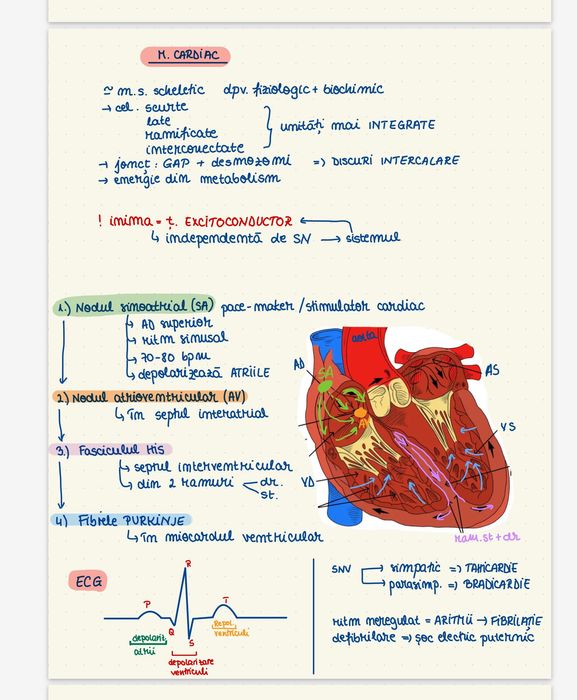 M. CARDIAC
≃ m.s. scheletic dpv. fiziologic + biochimic
→ cel. scurte
late
ramificate
interconectate
unități mai INTEGRATE
→ joncț: GAP + desmozomi => DISCURI INTERCALARE
→ energie din metabolism
! inima = ț. EXCITOCONDUCTOR
↳ independentă de SN → sistemul
1.) Nodul sinoatrial (SA) pace-maker / stimulator cardiac
↳ AD superior
↳ ritm sinusal
↳ 70-80 bpm
↳ depolarizează ATRIILE
2) Nodul atrioventricular (AV)
↳ în septul interatrial
3.) Fasciculul His
↳ septul interventricular
↳ din 2 ramuri
dr.
st.
4) Fibrele PURKINJE
↳ în miocardul ventricular
aorta
AD
SA
AS
VS
VD
ram. st + dr
ECG
P
Q
R
S
T
depolariz.
atrii
Repol.
ventriculi
depolarizare
ventriculi
SNV → simpatic => TAHICARDIE
→ parasimp. => BRADICARDIE
ritm neregulat = ARITMII → FIBRILAȚIE
defibrilare => șoc electric puternic